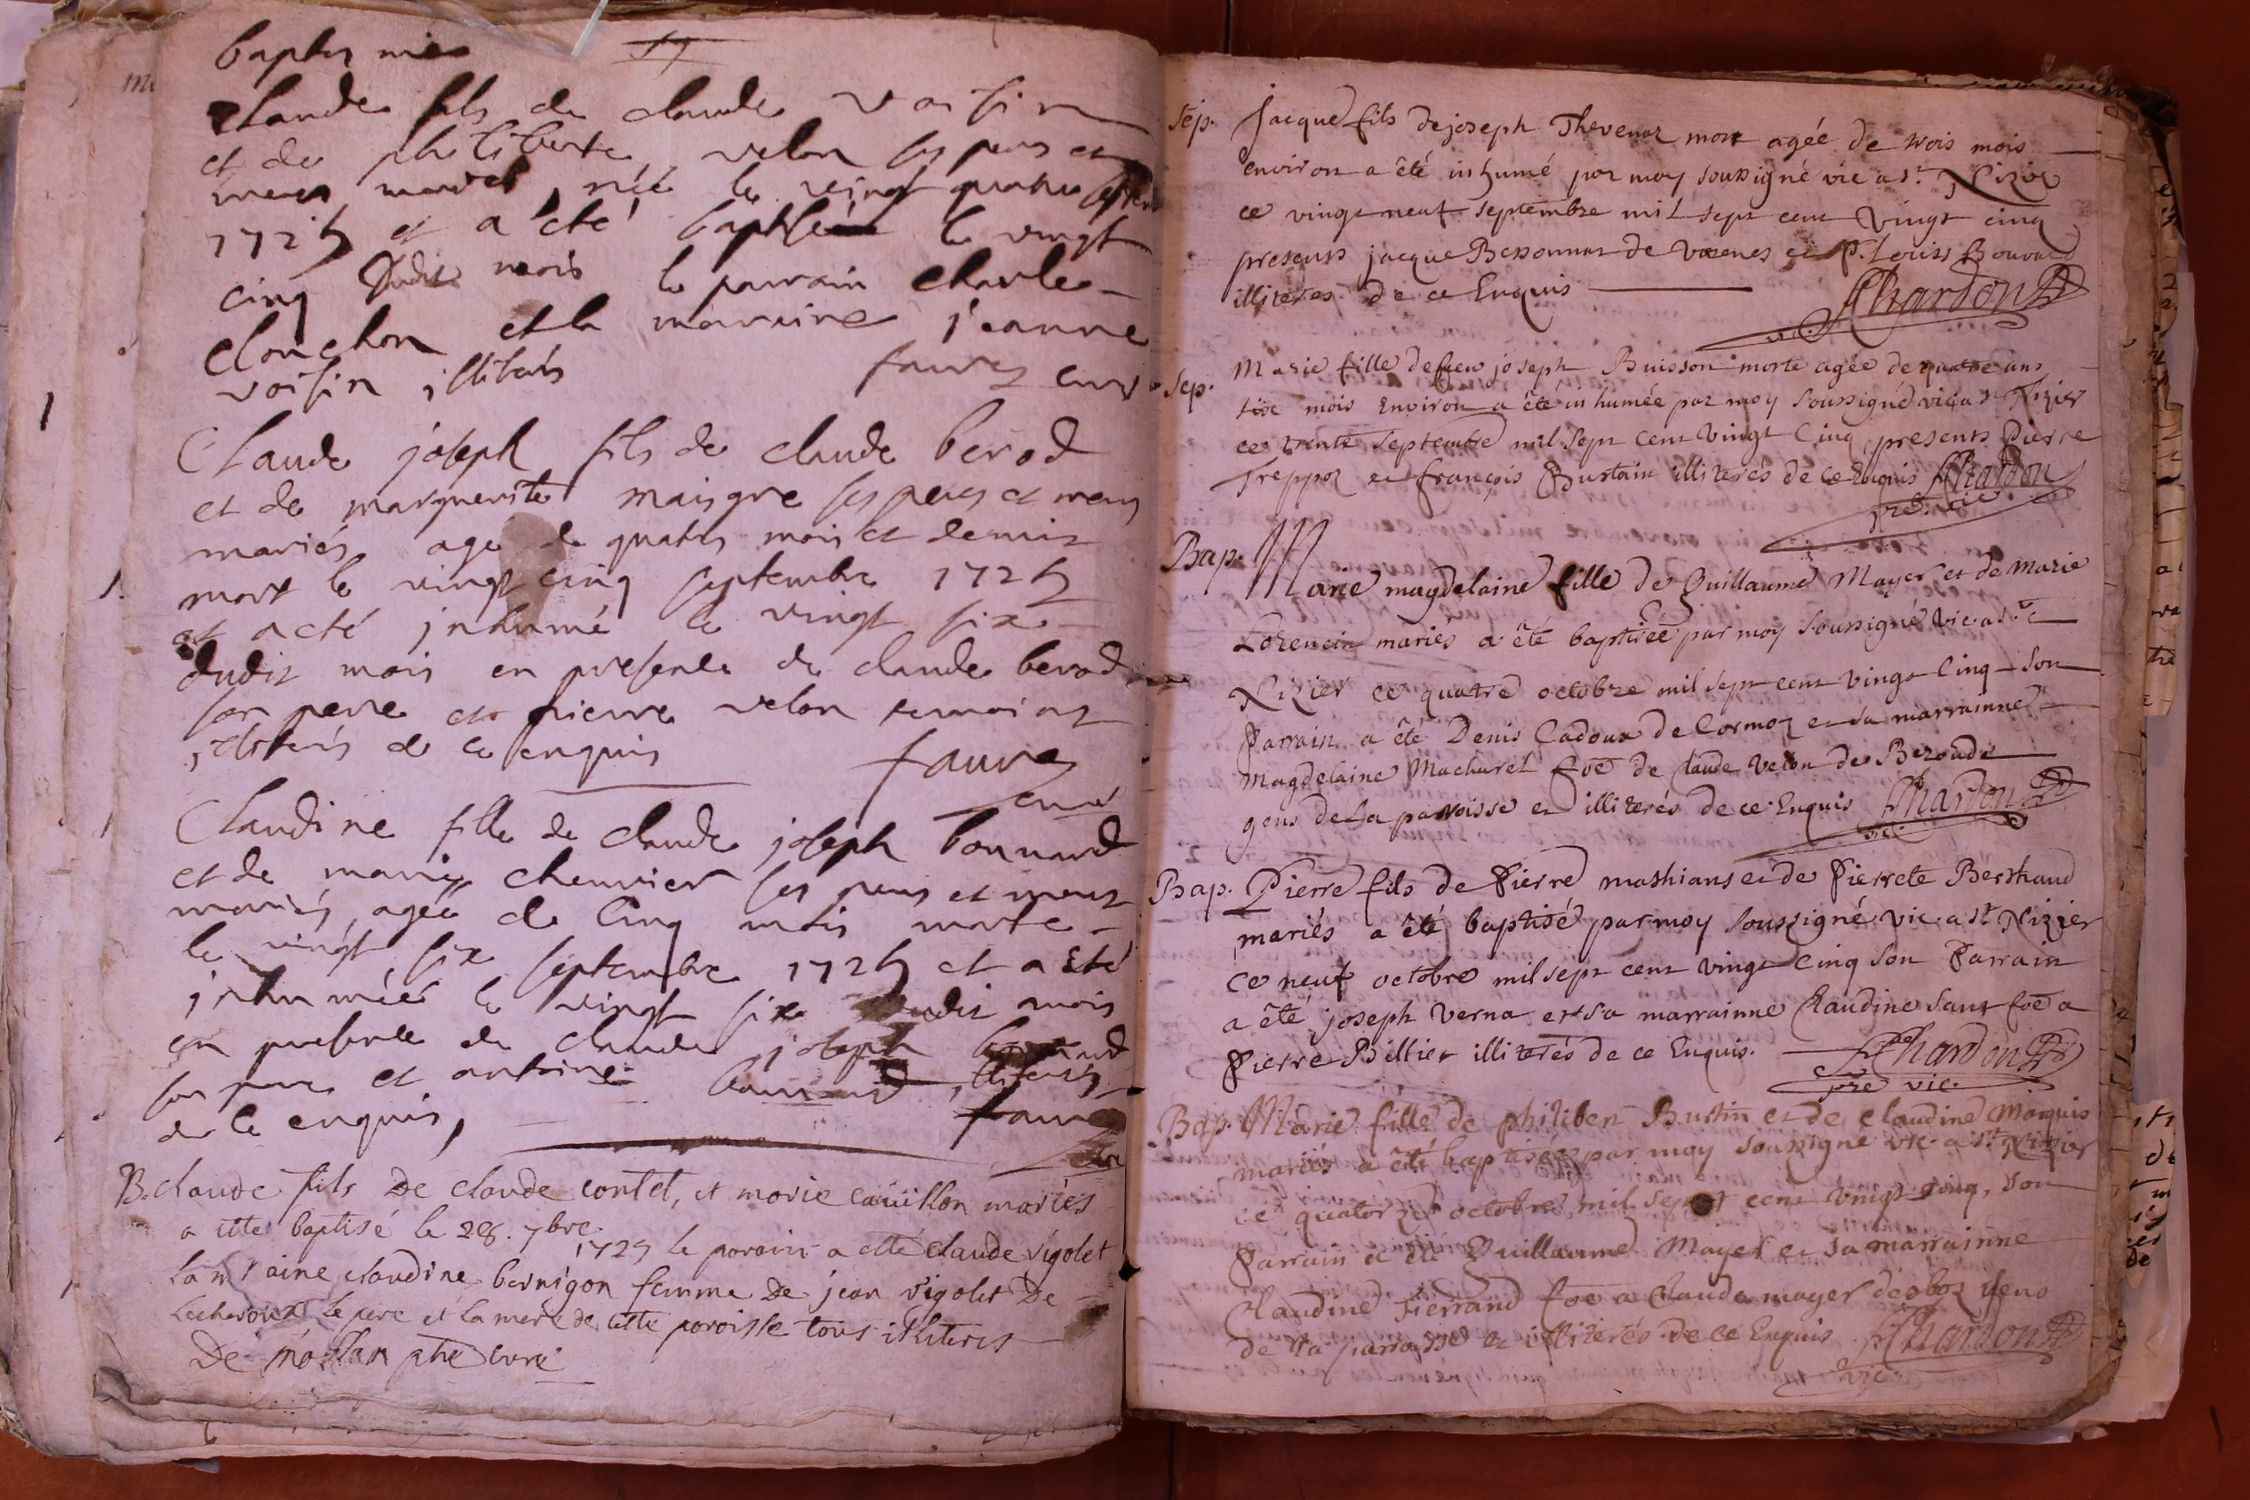 baptes mes
Claude fils de claude voisin
et de philiberte velon ses peres et
meres mariés, née le vingt quatre septembre
1725 et a été baptisé le vingt
cinq dudit mois le parrain charle
clonchon et la marraine jeanne
voisin illiterés faure curé
Claude joseph fils de claude berod
et de marguerite maigre ses peres et meres
mariés age de quatre mois et demit
mort le vingt cinq septembre 1725
et a eté inhumé le vingt six
dudit mois en presence de claude berod
son pere et pierre velon temoins
illiterés de ce enquis faure
curé
Claudine fille de claude joseph bonnard
et de marie chevrier ses peres et meres
mariés, agée de cinq mois morte
le vingt six septembre 1725 et a eté
inhumée le vingt six dudit mois
en presence de claude joseph bonnard
son pere et antoine bonnard illiterés
de ce enquis, faure
curé
B. claude fils De claude contet, et marie cauillon mariés
a etté baptisé le 28. 7bre.
1725 le parain a etté claude vigolet
la maraine claudine bernigon femme De jean vigolet De
le pere et la mere de cette paroisse tous illiterés
De ptre curé
Sep. Jacque fils de joseph Thevenoz mort agée de trois mois
environ a êté inhumé par moy soussigné vic a st. Nizier
ce vingt neuf septembre mil sept cent vingt cinq
presents jacque Bessonnat de Varenes et P. Louis Bouvard
illiterés de ce Enquis Chardon
vic.
Sep. Marie fille de feu joseph Buisson morte agée de quatre ans
six mois Environ a êté inhumée par moy soussigné vic a st Nizier
ce trente septembre mil sept cent vingt Cinq presents Pierre
Treppoz et françois Burtain illiterés de ce Enquis Chardon
pre. vic.
Bap. Marie magdelaine fille de Guillaume Mayer et de Marie
Lorencin mariés a êté baptisée par moy soussigné vic a st
Nizier ce quatre octobre mil sept cent vingt Cinq son
Parrain a êté Denis Cadoux de Cormoz et sa marrainne
Magdelaine Machurel foe de Claude Velon de Bezonde
gens de La parroisse et illiterés de ce Enquis Chardon
vic.
Bap. Pierre fils de Pierre mathians et de Pierrete Berthaud
mariés a êté baptisé par moy soussigné vic a st Nizier
ce neuf octobre mil sept cent vingt Cinq son Parrain
a êté joseph Verna et sa marrainne Claudine Saut foe a
Pierre Billier illiterés de ce Enquis. Chardon
pre vic.
Bap. Marie fille de philibert Burtin et de Claudine Marquis
mariés a êté baptisée par moy soussigné vic a st Nizier
ce quatorze octobre mil sept cent vingt cinq, son
Parrain a êté Guillaume Mayer et sa marrainne
Claudine Ferrand foe a Claude mayer desboz gens
de la parroisse et illiterés de ce Enquis Chardon
vic.